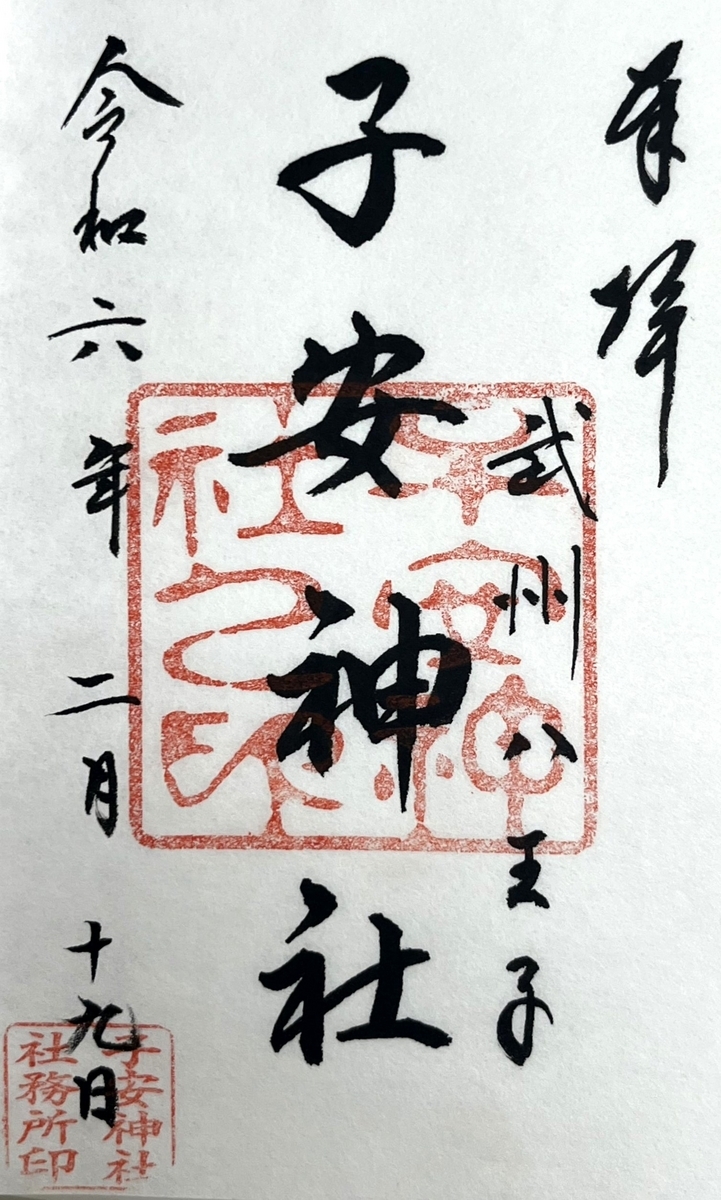 奉拝
武州八王子
子安神社
令和六年二月十九日
子安神社之印
子安神社
社務所印